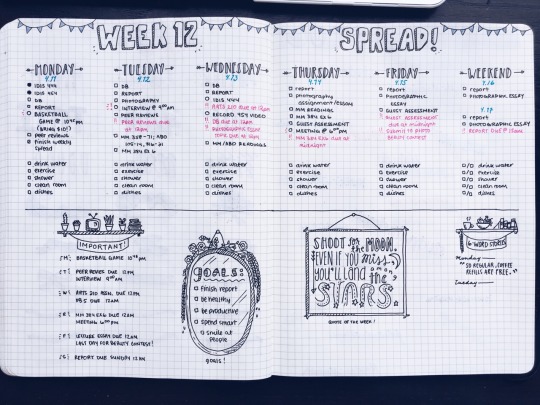 WEEK 12 SPREAD!
MONDAY
4.11
IDIS 444
IDIS 464
DB
REPORT
BASKETBALL
GAME @ 10:45 PM
(BRING $10!)
peer reviews
finish weekly
spread
drink water
exercise
shower
clean room
dishes
TUESDAY
4.12
DB
REPORT
PHOTOGRAPHY
INTERVIEW @ 9:00 AM
PEER REVIEWS
PEER REVIEWS due
at 12am
MM 384 EX 6
drink water
exercise
shower
clean room
dishes
WEDNESDAY
4.13
DB
REPORT
IDIS 444
ARTS 210 due at 12am
RECORD 454 VIDEO
DB due at 12am
PHOTOGRAPHIC ESSAY
TOPIC due at
drink water
exercise
shower
clean room
dishes
THURSDAY
4.14
report
photography
assignment/essay
MM READINGS
MM 384 EX 6
GUEST ASSESSMENT
MEETING @ 6:00 PM
MM 384 EX 6 due at
midnight
drink water
exercise
shower
clean room
dishes
FRIDAY
4.15
report
PHOTOGRAPHIC
ESSAY
GUEST ASSESSMENT
GUEST ASSESSMENT
due at midnight
SUBMIT TO PHOTO
BEAUTY CONTEST
drink water
exercise
shower
clean room
dishes
WEEKEND
4.16
report
PHOTOGRAPHIC ESSAY
4.17
REPORT
PHOTOGRAPHIC ESSAY
REPORT DUE @ 12am
drink water
exercise
shower
clean room
dishes
IMPORTANT!
:M: BASKETBALL GAME 10:45 PM
:T: PEER REVIEW DUE 12AM
INTERVIEW 9:00 AM
:W: ARTS 210 ASSN. DUE 12AM
DB'S DUE 12AM
:R: MM 384 EX6 DUE 12AM
MEETING 6:00 PM
:F: LEISURE ESSAY DUE 12AM
LAST DAY FOR BEAUTY CONTEST!
:S: REPORT DUE SUNDAY 12AM
GOALS:
finish report
be healthy
be productive
spend smart
smile at
people
goals!
SHOOT for the MOON.
EVEN IF YOU miss,
you'll land among
the STARS
QUOTE OF THE WEEK!
6-WORD STORIES
Monday
"SO REGULAR, COFFEE
REFILLS ARE FREE."
Tuesday